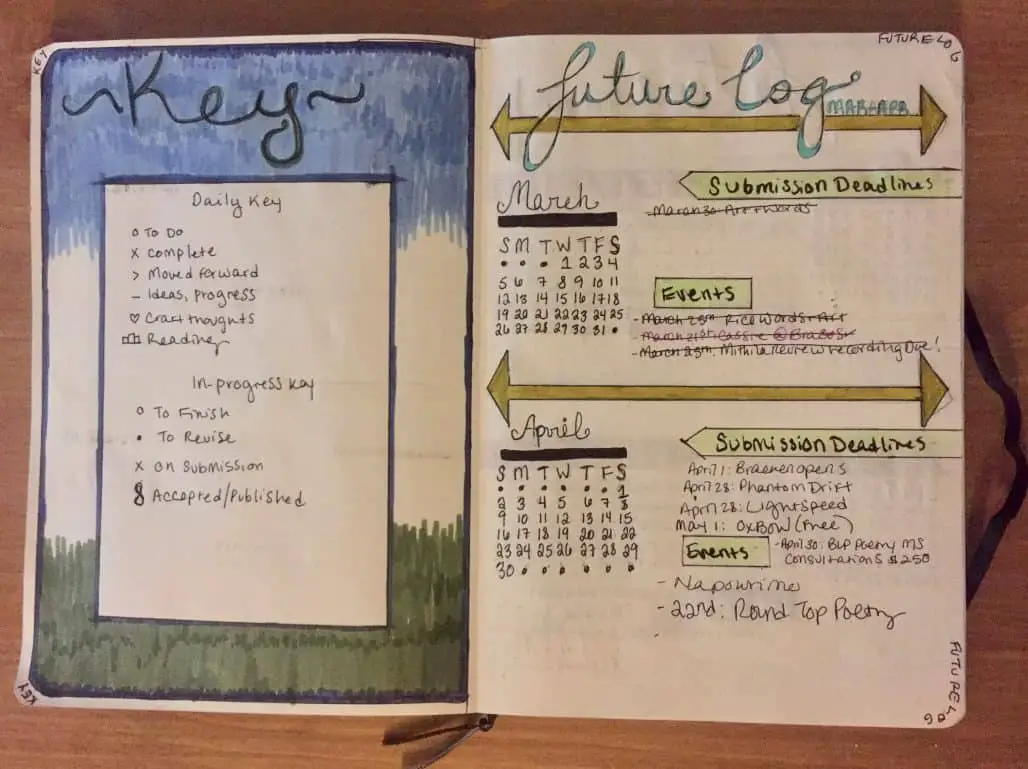 KEY
~Key~
Daily Key
o To Do
x complete
> Moved forward
– Ideas, progress
♡ Craft thoughts
Reading
In-progress Key
o To Finish
• To Revise
x on submission
8 Accepted/Published
KEY
FUTURE LOG
future log
MAR+APR
March
S M T W T F S
• • • 1 2 3 4
5 6 7 8 9 10 11
12 13 14 15 16 17 18
19 20 21 22 23 24 25
26 27 28 29 30 31 •
Submission Deadlines
- March 30: Art + Words
Events
- March 25th: Rice Words + Art
- March 21st: Cassie @
- March 25th: Mithila Review recording Due!
April
S M T W T F S
• • • • • • 1
2 3 4 5 6 7 8
9 10 11 12 13 14 15
16 17 18 19 20 21 22
23 24 25 26 27 28 29
30 • • • • • •
Submission Deadlines
April 1: Bracken opens
April 28: Phantom Drift
April 28: Lightspeed
May 1: OxBow (Free)
Events
- April 30: BLP Poetry MS
Consultations $250
- Napowrimo
- 22nd: Round Top Poetry
FUTURE LOG